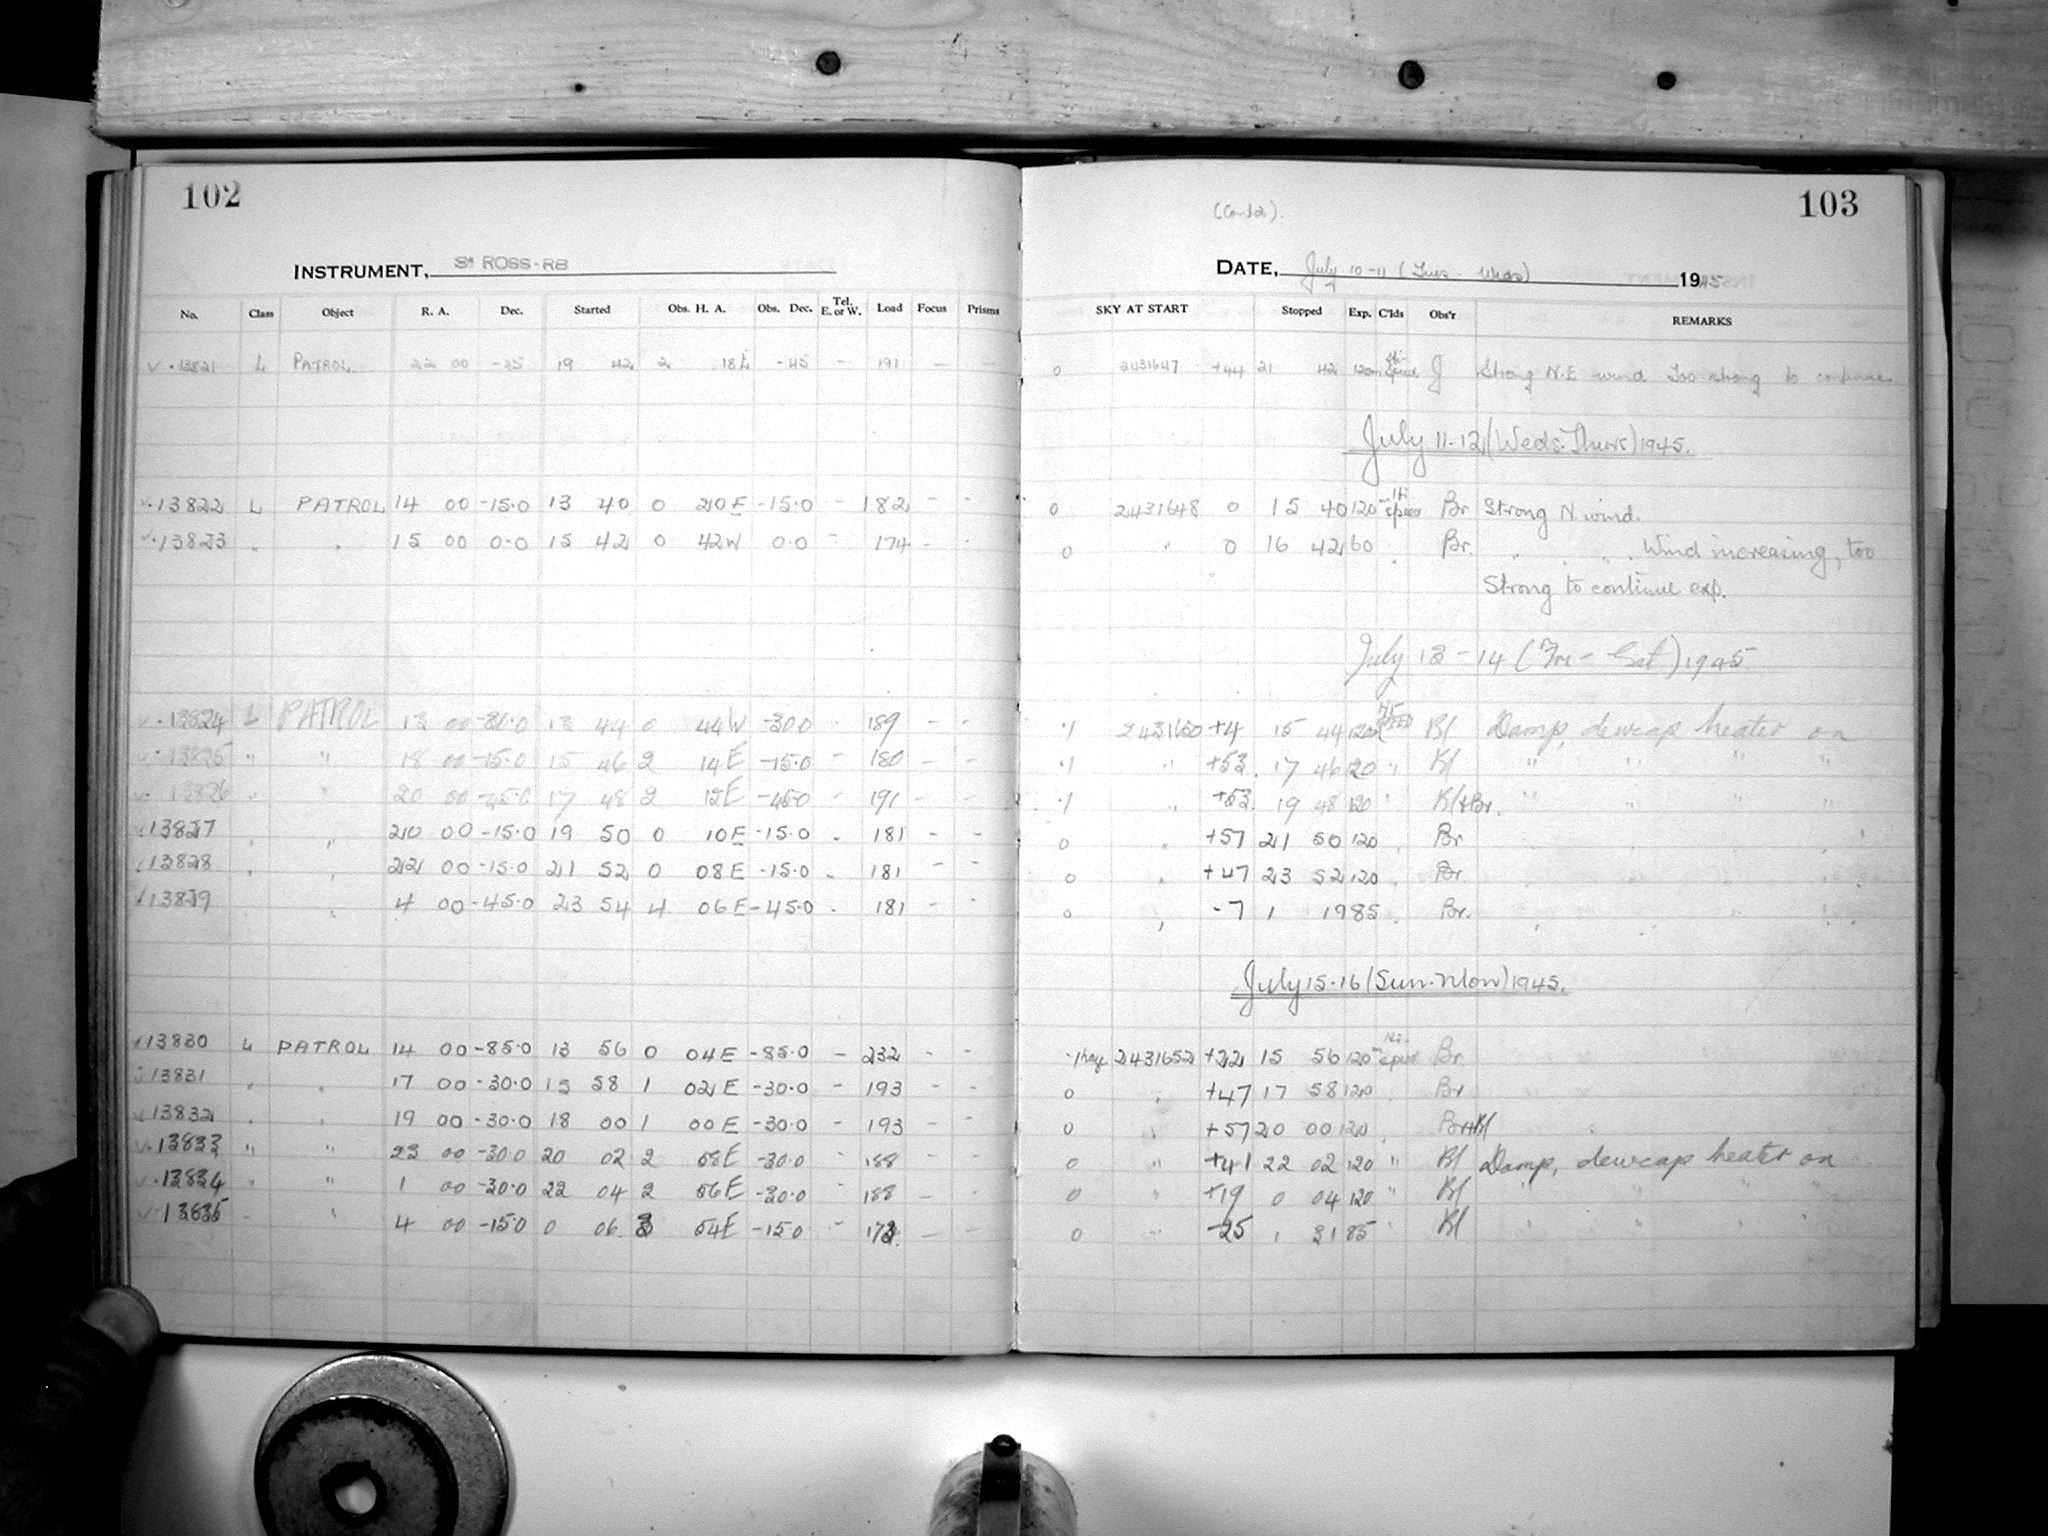 102
INSTRUMENT, ROSS-RB
No. Class Object R. A. Dec. Started Obs. H. A. Obs. Dec. Tel. E. or W. Load Focus Prisms
13821 L PATROL 22 00 -45 19 42 2 18E -45 - 191 - -
13822 L PATROL 14 00 -15.0 13 40 0 20E -15.0 - 182 - -
13823 " " 15 00 0.0 15 42 0 42W 0.0 - 174 - -
13824 L PATROL 13 00 -30.0 13 44 0 44W -30.0 - 189 - -
13825 " " 18 00 -15.0 15 46 2 14E -15.0 - 180 - -
13826 " " 20 00 -45.0 17 48 2 12E -45.0 - 191 - -
13827 " " 20 00 -15.0 19 50 0 10E -15.0 - 181 - -
13828 " " 22 00 -15.0 21 52 0 08E -15.0 - 181 - -
13829 " 4 00 -45.0 23 54 4 06E -45.0 - 181 - -
13830 L PATROL 14 00 -85.0 13 56 0 04E -85.0 - 232 - -
13831 " " 17 00 -30.0 15 58 1 02E -30.0 - 193 - -
13832 " " 19 00 -30.0 18 00 1 00E -30.0 - 193 - -
13833 " " 23 00 -30.0 20 02 2 58E -30.0 - 188
13834 " " 1 00 -30.0 22 04 2 56E -30.0 - 188 - -
13835 " " 4 00 -15.0 0 06 3 54E -15.0 - -
103
(Contd).
DATE, July 10-11 (Tues - Weds) 1945
SKY AT START Stopped Exp. C'lds Obs'r REMARKS
0 2431647 +44 21 42 120 Hi-speed J Strong N.E wind Too strong to continue
July 11-12 (Weds-Thurs) 1945.
0 2431648 0 15 40 120 Hi-speed Br Strong N. wind.
0 " 0 16 42 60 " Br. " " " Wind increasing, too
Strong to continue exp.
July 13-14 (Fri - Sat) 1945
.1 2431650 +4 15 44 120 Bl Damp, dewcap heater on
.1 " +53 17 46 120 " Bl " " " "
.1 " +53 19 48 120 " Bl+Br. " " " "
0 " +57 21 50 120 " Br
0 " +47 23 52 120 " Br
0 " -7 1 19 85 " Br.
July 15-16 (Sun-Mon) 1945.
2431652 +22 15 56 120 Hi-speed Br
0 " +47 17 58 120 " Br
0 " +57 20 00 120 " Br+Bl
0 " +41 22 02 120 " Bl Damp, dewcap heater on
0 " +19 0 04 120 " Bl " " " "
0 " -25 1 31 85 " Bl " " " "